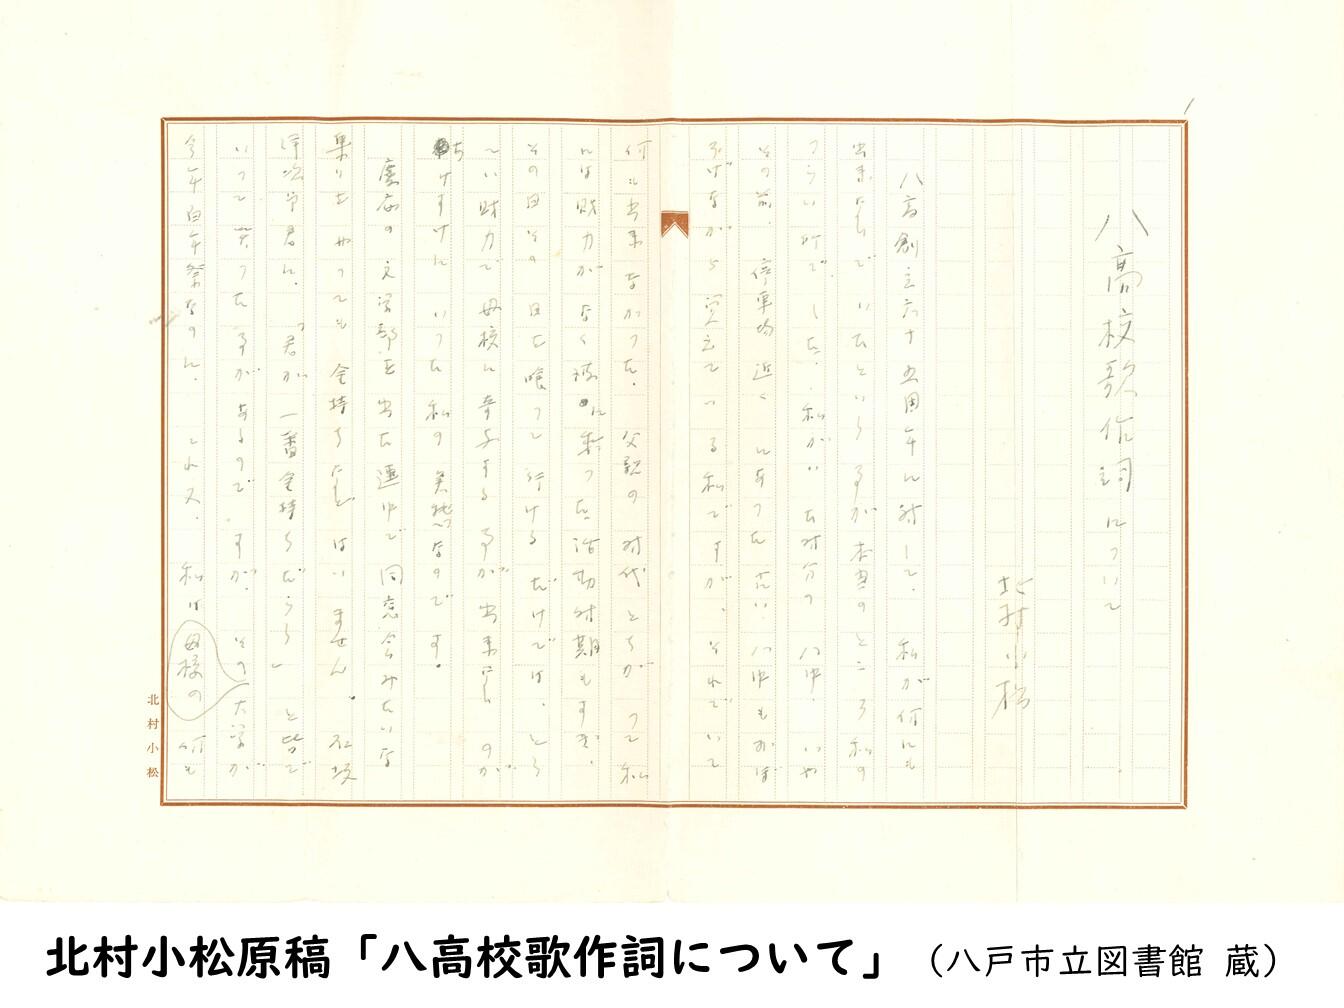 八高校歌作詞について
北村小松
八高創立六十五周年に対して、私が何にも
出来ないでいたという事が本当のところ私の
つらい所でした。私がいた時分の八中、いや
その前、停車場近くにあった古い八中もおぼ
ろげながら覚えている私ですが、それでいて
何も出来なかった。父親の時代とちがって私
には財力がなく
その日その日を喰って行けるだけでは、とう
てい財力で母校に寄与する事が出来ないのが
私の実態なのです。
慶応の文学部を出た連中で同窓会みたいな
集りをやっても金持ちなどはいません。石坂
洋次郎君に、「君が一番金持ちだろう」と皆で
いって笑った事があるのですが、その大学が
今年百年祭なのに、私は母校の何も
北村小松
北村小松原稿「八高校歌作詞について」（八戸市立図書館 蔵）